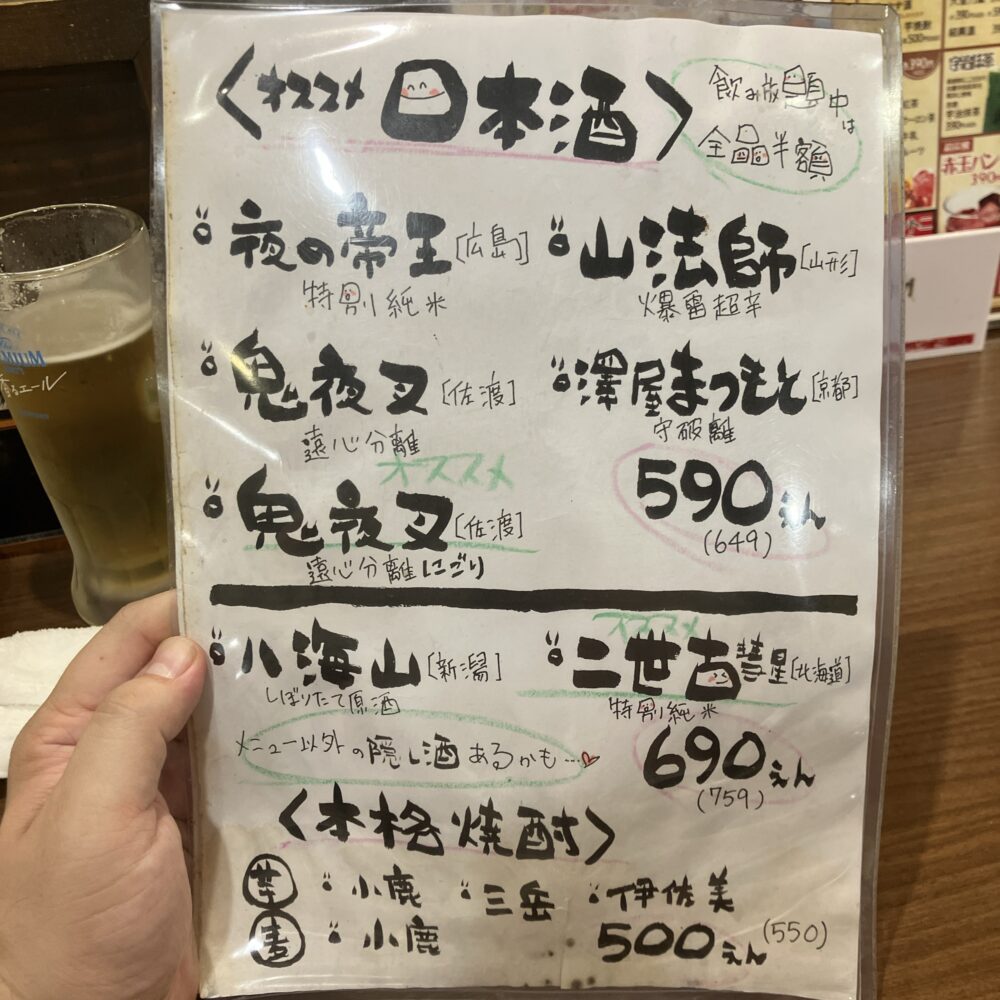 〈オススメ 日本酒〉
飲み放題中は
全品半額
夜の帝王[広島]
特別純米
山法師[山形]
爆雷超辛
鬼夜叉[佐渡]
遠心分離
澤屋まつもと[京都]
守破離
オススメ
鬼夜叉[佐渡]
遠心分離にごり
590えん
(649)
八海山[新潟]
しぼりたて原酒
オススメ
二世古彗星[北海道]
特別純米
メニュー以外の隠し酒あるかも…
690えん
(759)
〈本格焼酎〉
芋 小鹿 三岳 伊佐美
麦 小鹿
500えん(550)
赤玉パン